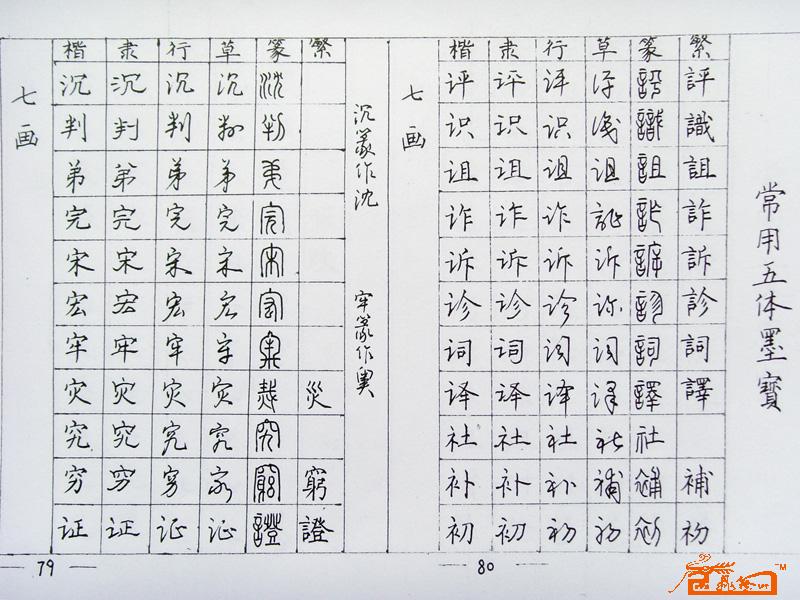 楷 隶 行 草 篆 繁
沉 沉 沉 沉 沈
判 判 判 判 判
弟 弟 弟 弟 弟
完 完 完 完 完
宋 宋 宋 宋 宋
宏 宏 宏 宏 宏
牢 牢 牢 牢
灾 灾 灾 灾 烖 災
究 究 究 究 究
穷 穷 穷 穷 窮 窮
证 证 证 证 證 證
七画
沉篆作沈
79
楷 隶 行 草 篆 繁
评 评 评 评 評 評
识 识 识 识 識 識
诅 诅 诅 诅 詛 詛
诈 诈 诈 詐 詐 詐
诉 诉 诉 诉 訴 訴
诊 诊 诊 诊 診 診
词 词 词 词 詞 詞
译 译 译 译 譯 譯
社 社 社 社 社
补 补 补 補 補 補
初 初 初 初 初 初
七画
80
常用五体墨寶